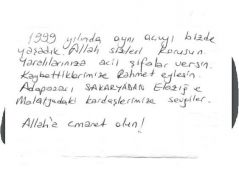 1999 yılında aynı acıyı bizde
yaşadık Allah sizleri korusun
Yaralılarınıza acil şifalar versin.
Kaybettiklerimize Rahmet eylesin.
Adapazarı SAKARYADAN Elazığ ve
Malatyadaki kardeşlerimize sevgiler.
Allah'a emanet olun!